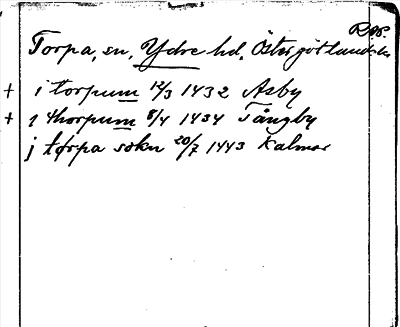 RAP.
Torpa, sn, Ydre hd. Östergötlands
+ i torpum 12/3 1432 Asby
+ i thorpum 8/4 1434 Tångby
j torpa sokn 20/7 1443 Kalmar